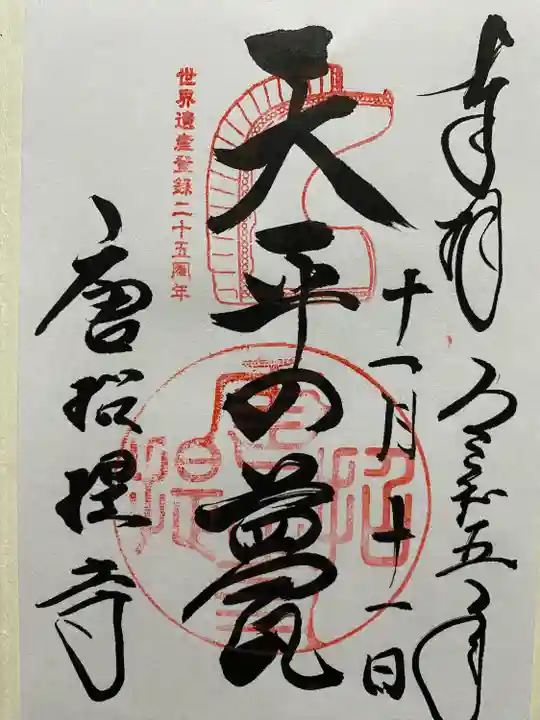 奉拝 令和五年
十一月十一日
天平の甍
世界遺産登録二十五周年
唐招提寺